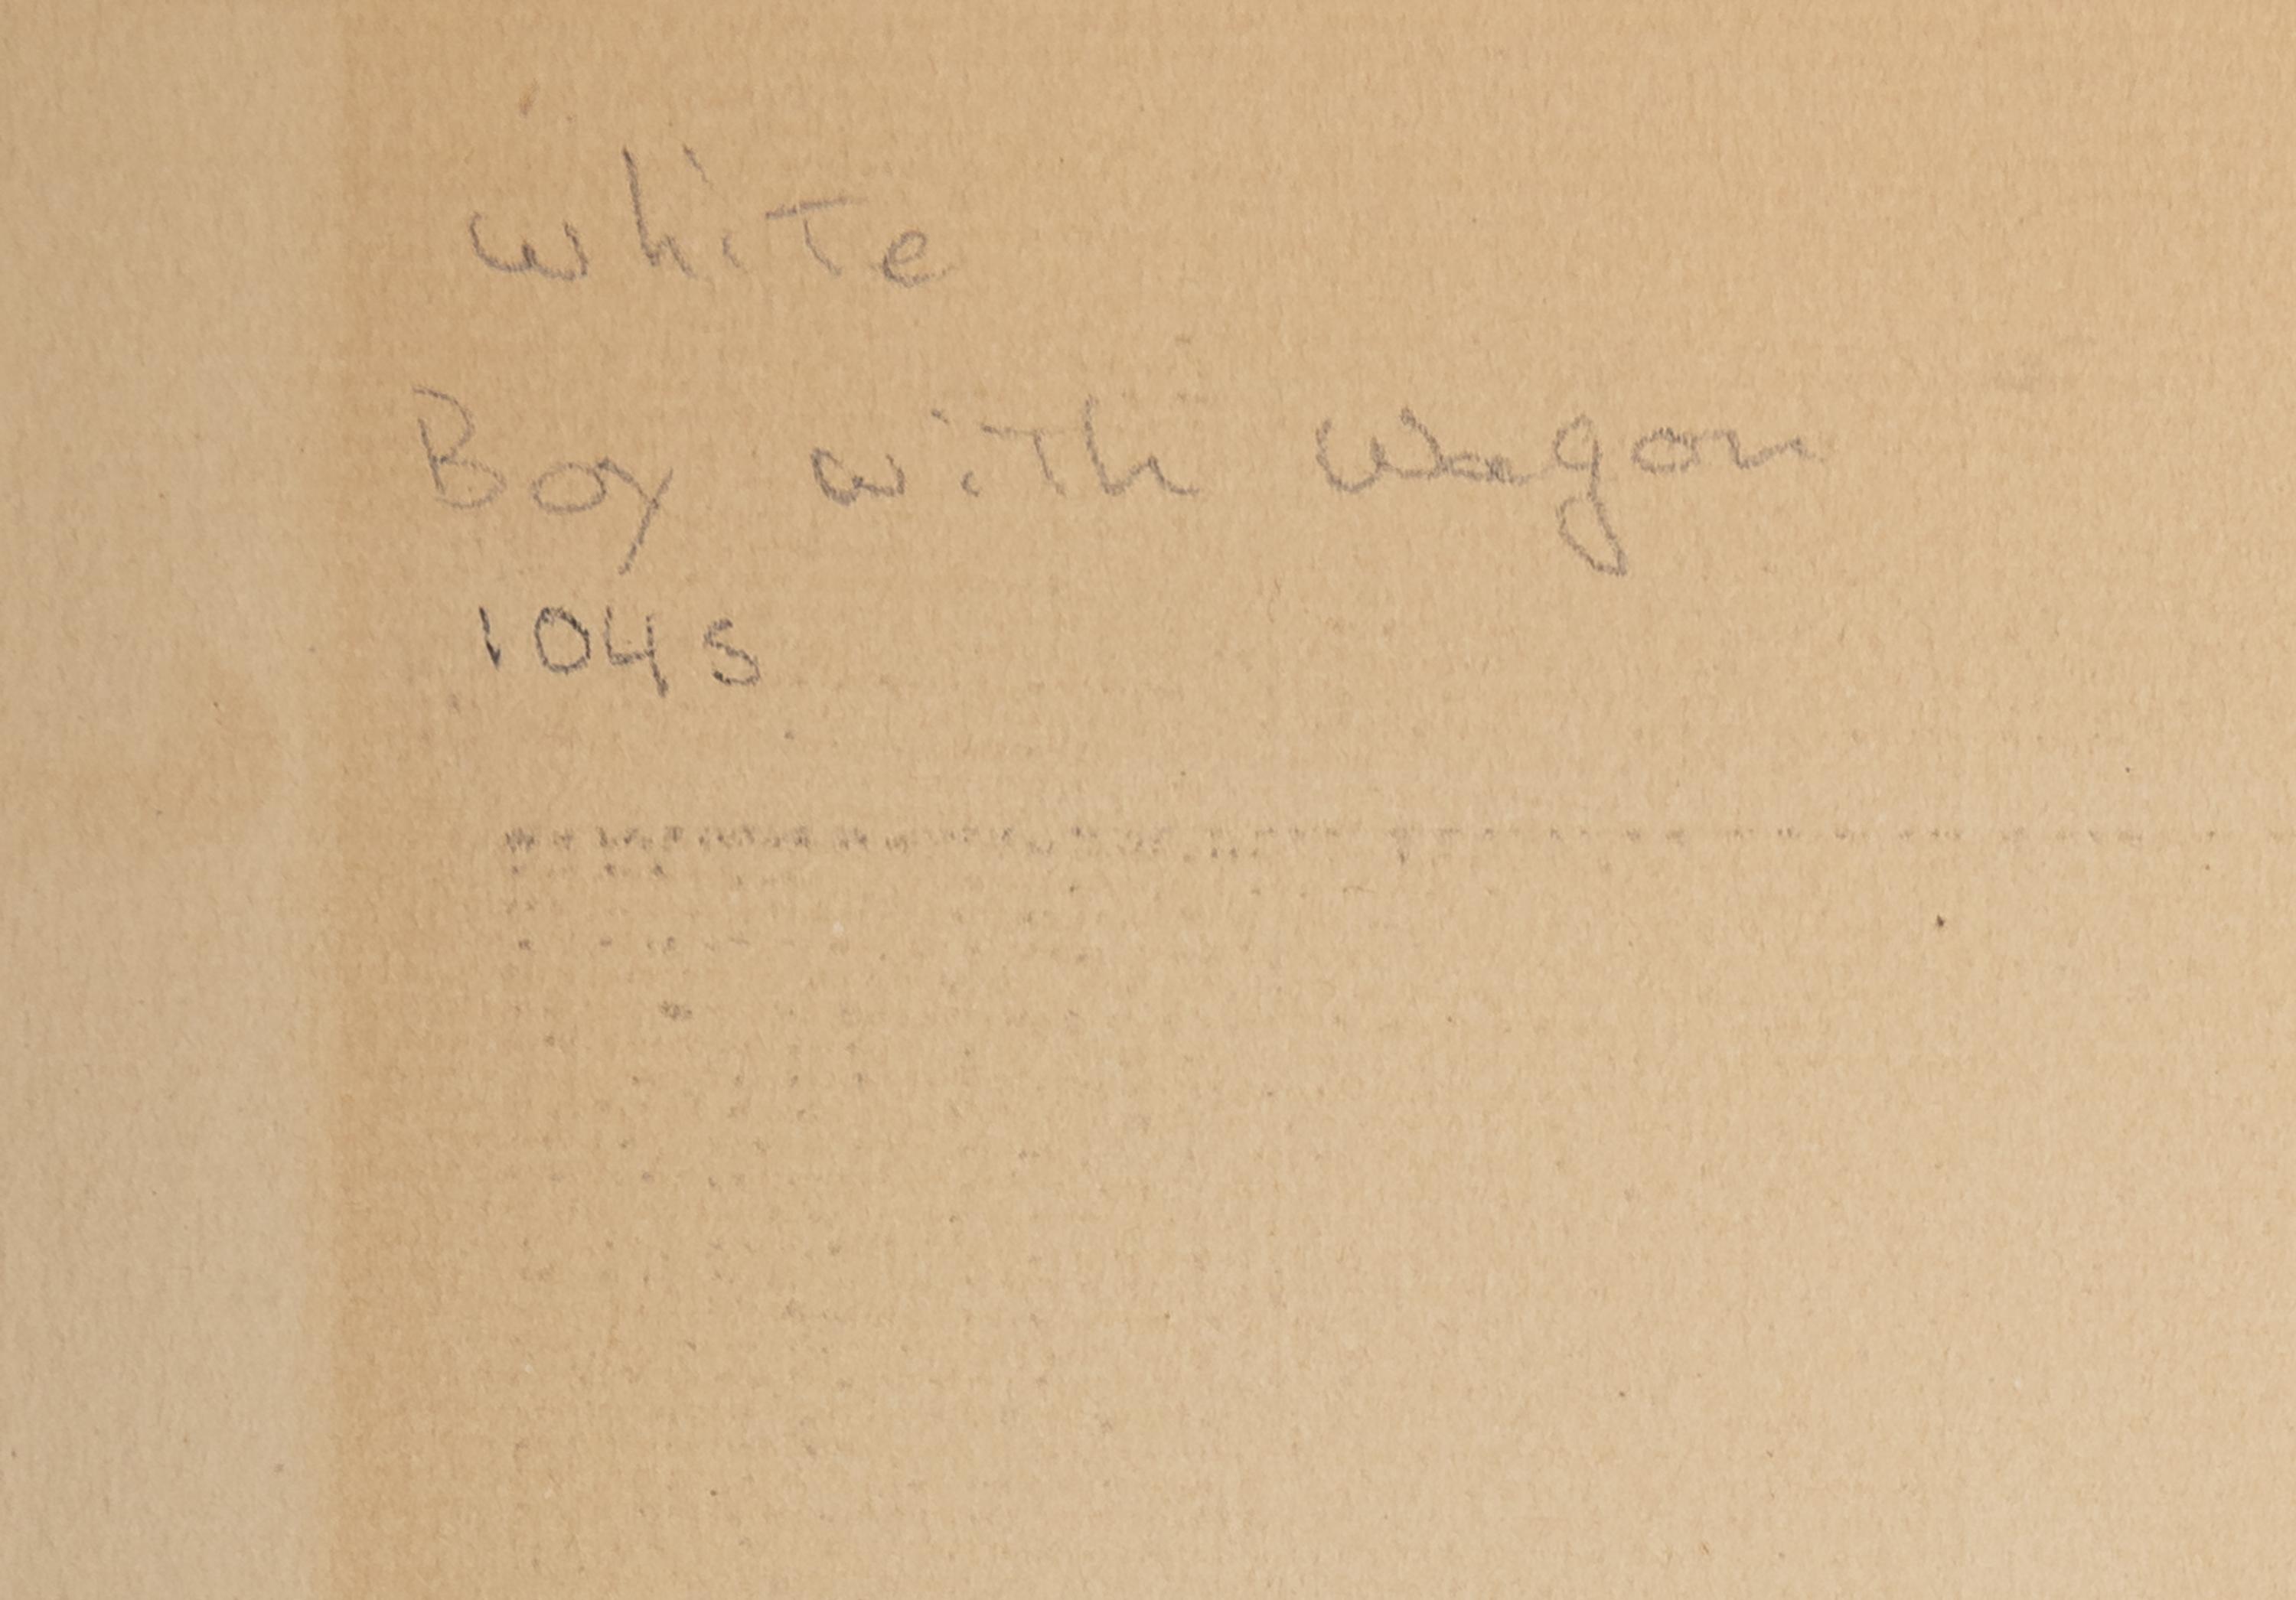 White
Boy with Wagon
1045